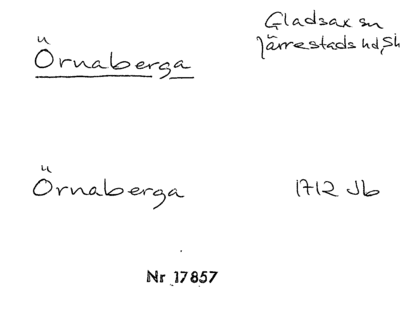 Örnaberga
Gladsax sn
Järrestads hd, Sk
Örnaberga 1712 Jb
Nr 17857